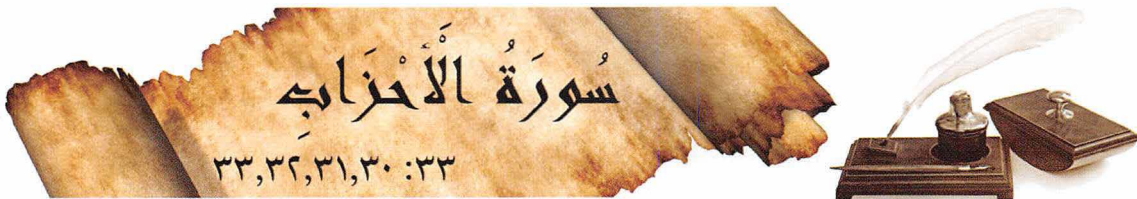 سُورَةُ الْأَحْزَابِ
٣٣: ٣٠,٣١,٣٢,٣٣